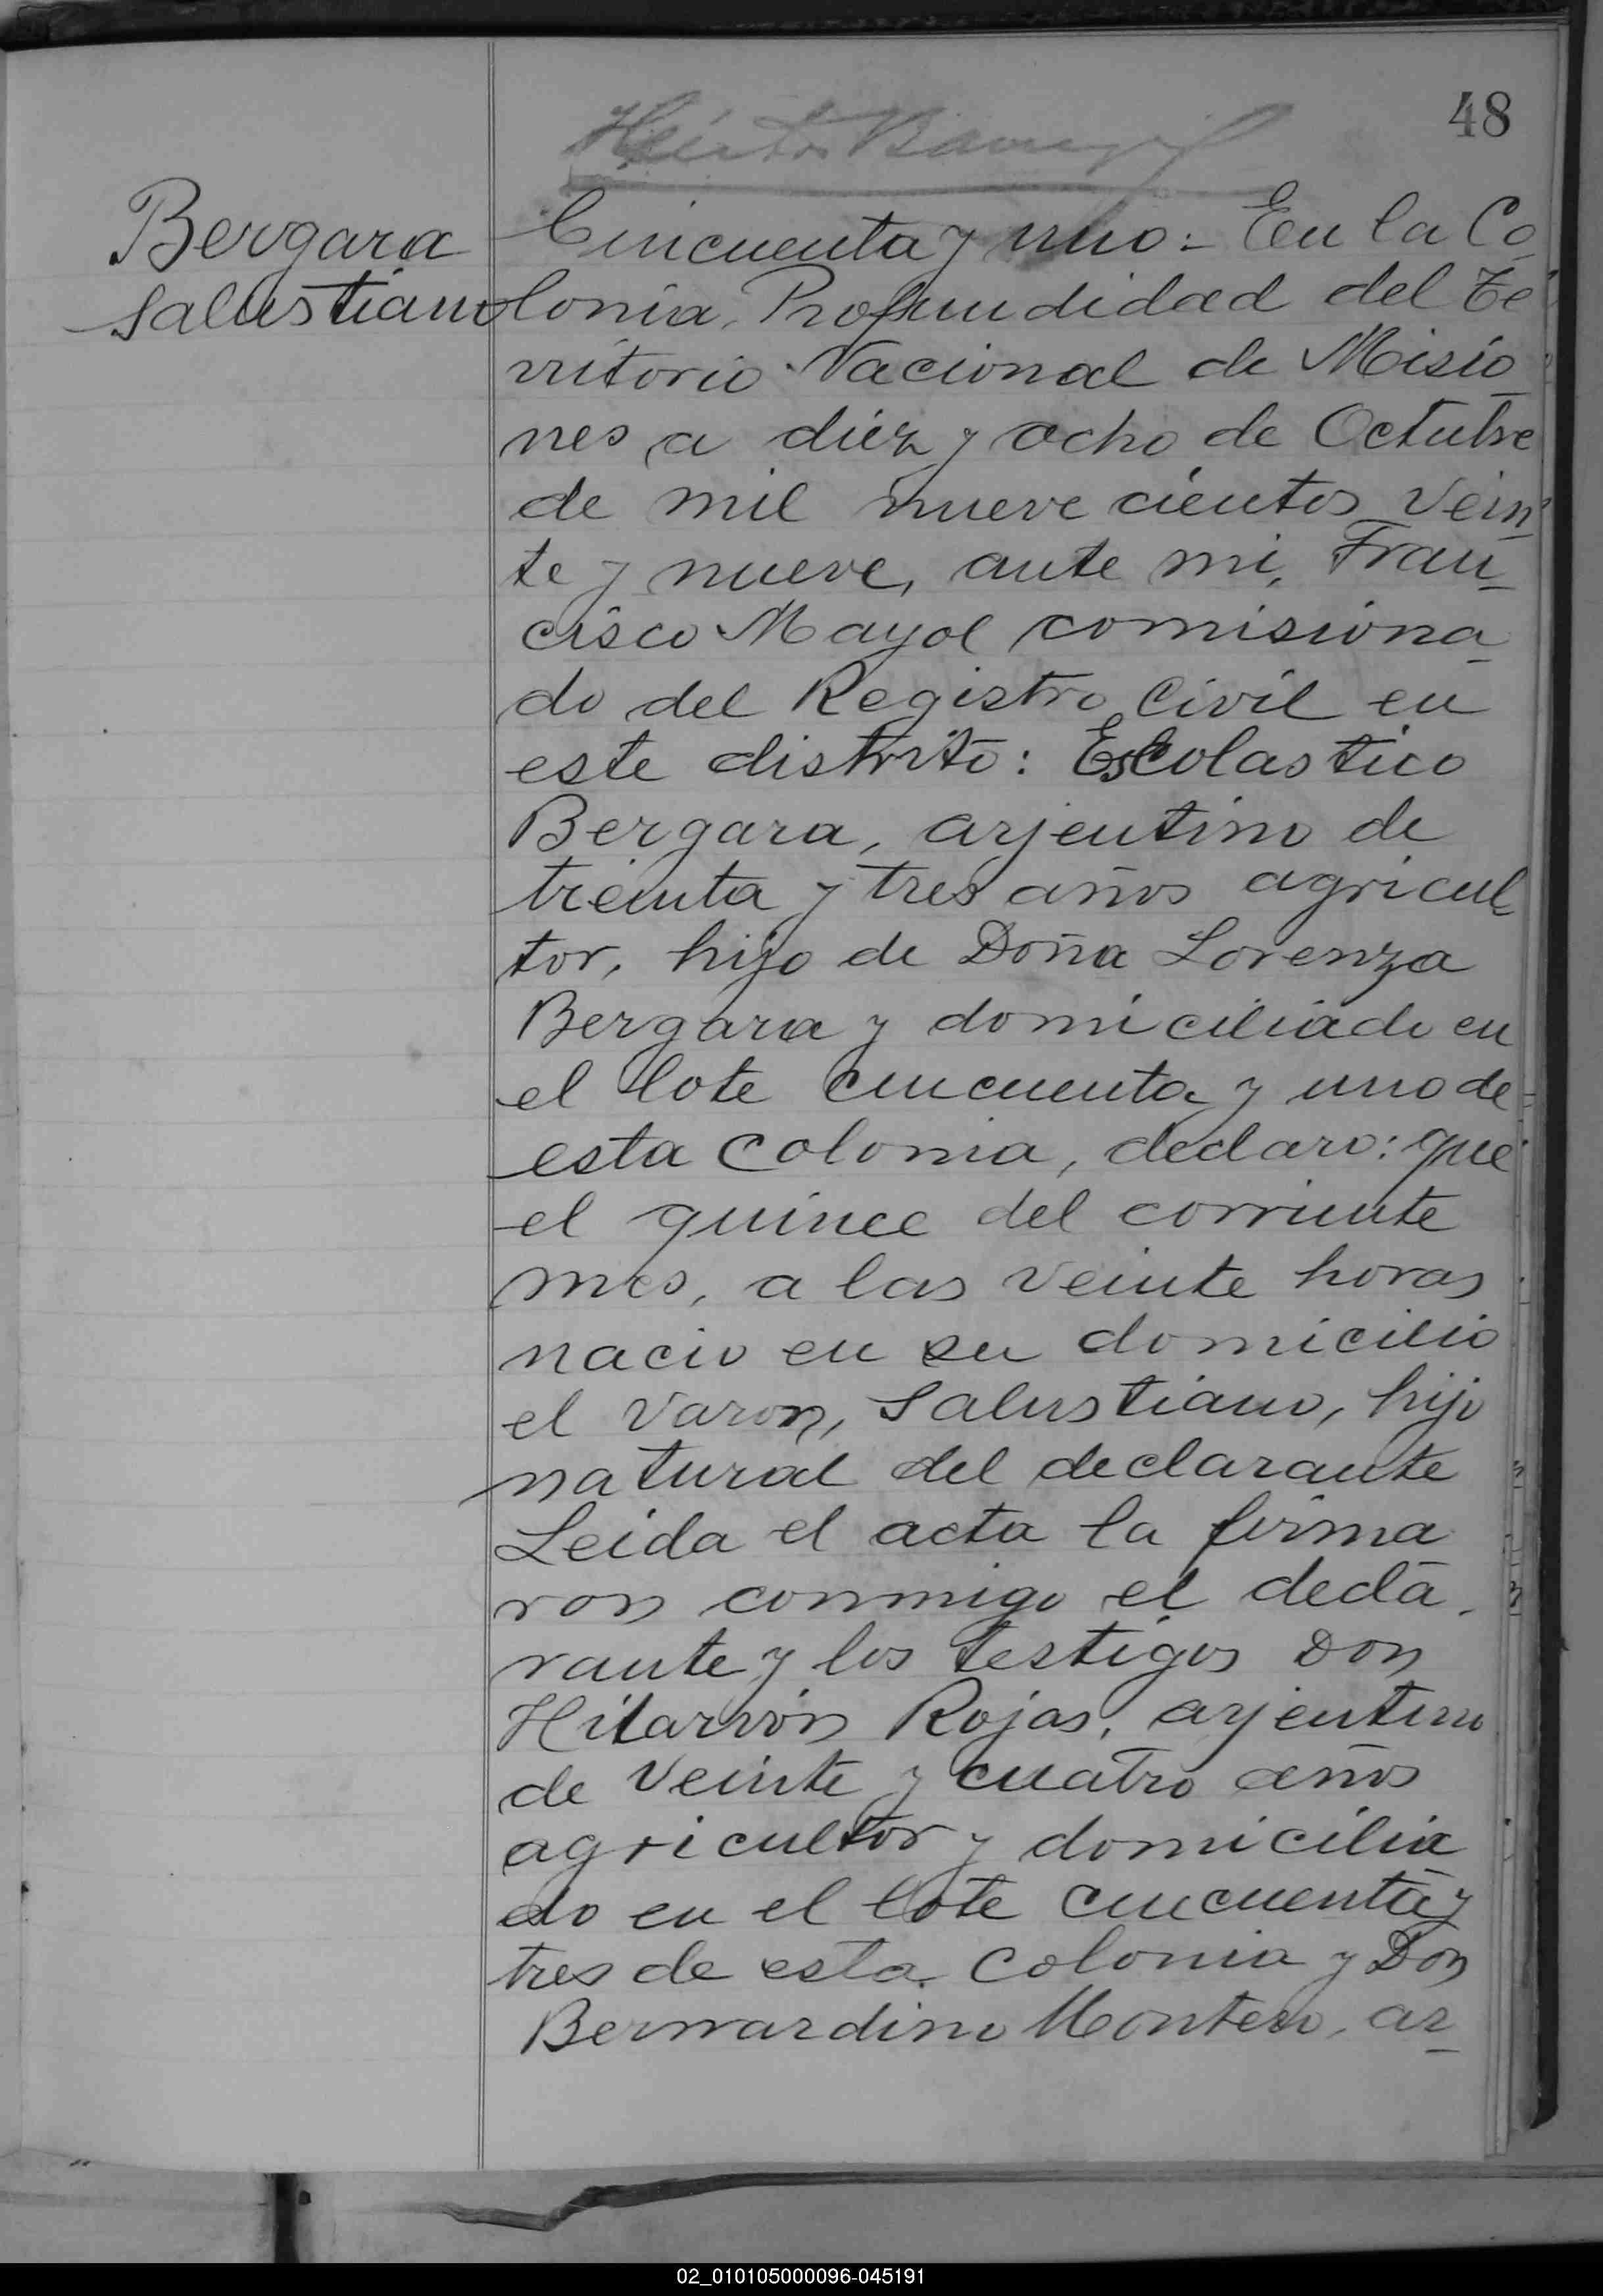 48
Bergara
Salustiano
Cincuenta y uno:- En la Co
lonia, Profundidad del Te
rritorio Nacional de Misio
nes a diez y ocho de Octubre
de mil nueve cientos vein
te y nueve, ante mi, Fran
cisco Mayol comisiona
do del Registro Civil en
este distrito: Escolastico
Bergara, arjentino de
treinta y tres años agricul
tor, hijo de Doña Lorenza
Bergara y domiciliado en
el lote cincuenta y uno de
esta Colonia, declaro: que
el quince del corriente
mes, a las veinte horas
nacio en su domicilio
el varon, Salustiano, hijo
natural del declarante
Leida el acta la firma
ron conmigo el decla
rante y los testigos Don
Hilarión Rojas, arjentino
de veinte y cuatro años
agricultor y domicilia
do en el lote cincuenta y
tres de esta Colonia y Don
Bernardino Montero, ar
02_010105000096-045191